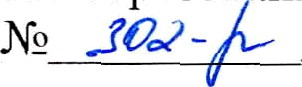 № 302-р